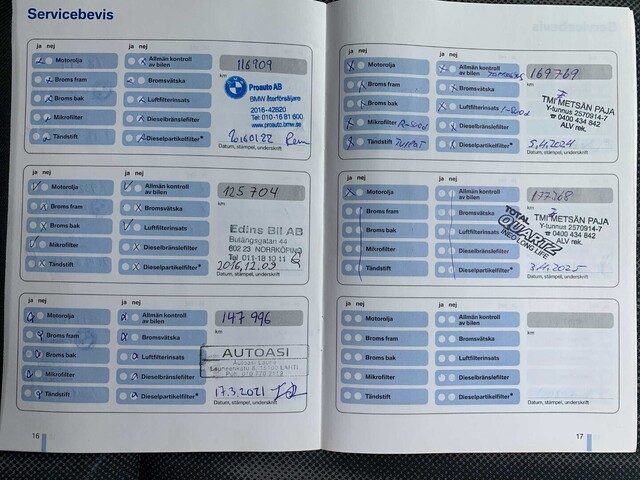 Servicebevis
ja nej ja nej
Motorolja Allmän kontroll av bilen 116909
Broms fram Bromsvätska km
Broms bak Luftfilterinsats
Mikrofilter Dieselbränslefilter
Tändstift Dieselpartikelfilter*
Proauto AB
BMW återförsäljare
2016-42820
Tel: 010-16 81 600
www.proauto.bmw.se
20160122
Datum, stämpel, underskrift
ja nej ja nej
Motorolja Allmän kontroll av bilen 125 704
Broms fram Bromsvätska km
Broms bak Luftfilterinsats
Mikrofilter Dieselbränslefilter
Tändstift Dieselpartikelfilter*
Edins Bil AB
Butängsgatan 44
602 23 NORRKÖPING
Tel 011-18 10 11
2016,12,09
Datum, stämpel, underskrift
ja nej ja nej
Motorolja Allmän kontroll av bilen 147 996
Broms fram Bromsvätska km
Broms bak Luftfilterinsats
Mikrofilter Dieselbränslefilter
Tändstift Dieselpartikelfilter*
AUTOASI
17.3.2021
Datum, stämpel, underskrift
16
ja nej ja nej
Motorolja Allmän kontroll av bilen 169769
Broms fram Bromsvätska km
Broms bak Luftfilterinsats
Mikrofilter Dieselbränslefilter
Tändstift Dieselpartikelfilter*
TMI METSÄN PAJA
Y-tunnus 2570914-7
☎ 0400 434 842
ALV rek.
5.4.2024
Datum, stämpel, underskrift
ja nej ja nej
Motorolja Allmän kontroll av bilen 177268
Broms fram Bromsvätska km
Broms bak Luftfilterinsats
Mikrofilter Dieselbränslefilter
Tändstift Dieselpartikelfilter*
TOTAL
QUARTZ
INEO LONG LIFE
TMI METSÄN PAJA
Y-tunnus 2570914-7
☎ 0400 434 842
ALV rek.
3.4.2025
Datum, stämpel, underskrift
ja nej ja nej
Motorolja Allmän kontroll av bilen
Broms fram Bromsvätska km
Broms bak Luftfilterinsats
Mikrofilter Dieselbränslefilter
Tändstift Dieselpartikelfilter*
Datum, stämpel, underskrift
17